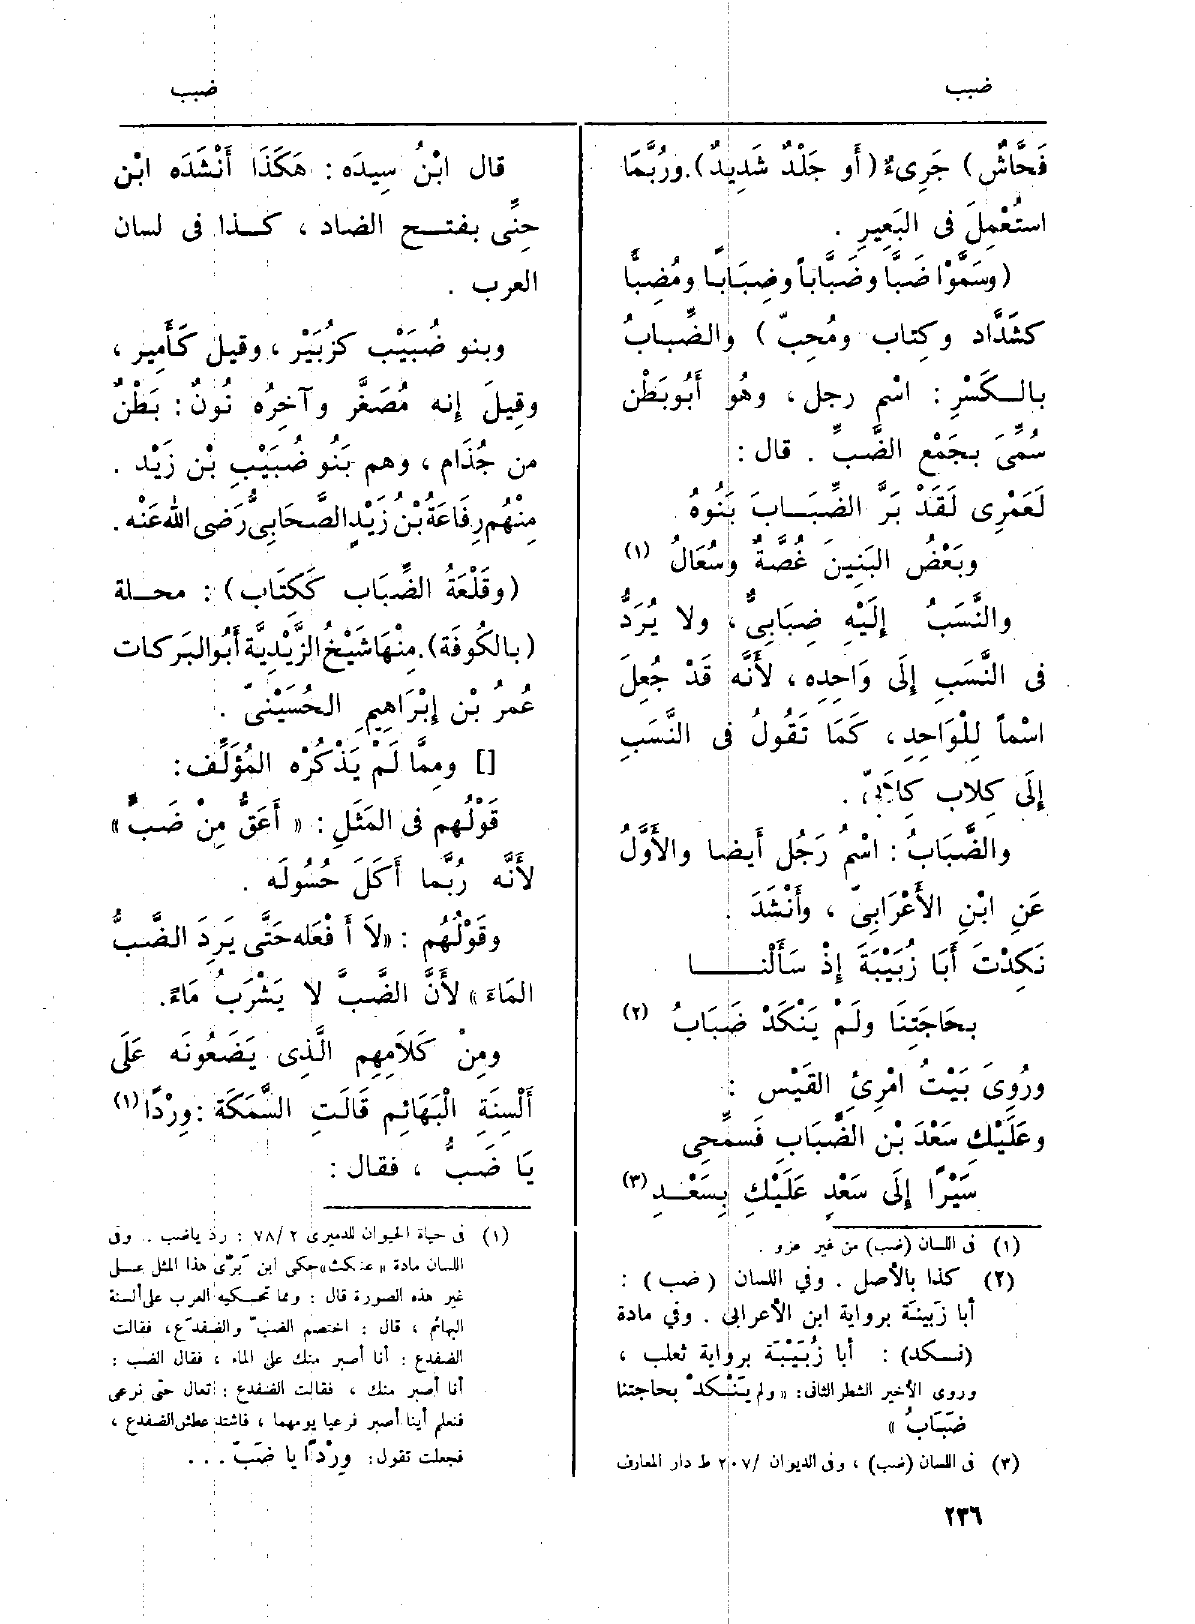 ضبب
ضبب
فَحَّاشٌ) جَرِىءٌ (أَو جَلْدٌ شَدِيدٌ). ورُبَّمَا
استُعْمِلَ فى البَعِيرِ .
(وسَمَّوْا ضَبًّا وضَبَّاباً وضِبَابًا ومُضِبًّا
كشَدَّاد وكِتاب ومُحِبّ) والضِّبابُ
بالكَسْرِ : اسْم رجل ، وهُو أَبُو بَطْن
سُمِّىَ بجَمْع الضَّبِّ . قال :
لَعَمْرِى لَقَدْ بَرَّ الضِّبَابَ بَنُوهُ
وبَعْضُ البَنِينَ غُصَّةٌ وسُعَالُ (١)
والنَّسَبُ إلَيْهِ ضِبَابِىٌّ، ولا يُرَدُّ
فى النَّسَبِ إلَى وَاحِدِه ، لأَنَّه قَدْ جُعِلَ
اسْماً لِلْوَاحِدِ ، كَمَا تَقُولُ فى النَّسَبِ
إلَى كِلاب كِلاَبِىّ .
والضَّبَابُ : اسْمُ رَجُل أَيضا والأَوَّلُ
عَنِ ابْنِ الأَعْرَابِىّ ، وأَنْشَدَ .
نَكِدْتَ أَبَا زُبَيْبَةَ إذْ سَأَلْنَا
بحَاجَتِنَا ولَمْ يَنْكَدْ ضَبَابُ (٢)
ورُوِىَ بَيْتُ امْرِئِ القَيْس :
وعَلَيْكِ سَعْدَ بْن الضَّبَابِ فَسمِّحِى
سَيْرًا إلَى سَعْدٍ عَلَيْكِ بِسَعْدِ (٣)
(١) فى اللسان (ضبب) من غير عزو .
(٢) كذا بالأصل . وفي اللسان (ضبب) :
أبا زَبينَة برواية ابن الأعرابى . وفي مادة
(نكد) : أبا زُبَيْبَة برواية ثعلب ،
وروى الأخير الشطر الثانى : « ولم يَنْكَد بحاجتنا
ضَبَابُ »
(٣) فى اللسان (ضبب) ، وفى الديوان /٢٠٧ ط دار المعارف
قال ابْنُ سِيدَه : هَكَذَا أَنْشَدَه ابْن
جِنِّى بفتح الضاد ، كذا فى لسان
العرب .
وبنو ضُبَيْب كزُبَيْر ، وقيل كَأَمِير ،
وقِيلَ إنه مُصَغَّر وآخِرُه نُونٌ : بَطْنٌ
من جُذَام ، وهم بَنُو ضُبَيْبِ بْن زَيْد .
مِنْهُم رِفَاعَةُ بْنُ زَيْدٍ الصَّحَابِىُّ رَضى الله عَنْه .
(وقَلْعَةُ الضِّبَاب كَكِتَاب) : محلة
(بالكُوفَة). مِنْهَا شَيْخُ الزَّيْدِيَّة أَبُو البَركات
عُمرُ بْن إبْرَاهِيمِ الحُسَيْنىّ .
[] ومِمَّا لَمْ يَذْكُرْه المُؤَلِّف :
قَوْلُهم فى المَثَلِ : « أَعَقُّ مِنْ ضَبٍّ »
لأَنَّه رُبَّما أَكَلَ حُسُولَه .
وقَوْلُهُم : «لاَ أَفْعَله حَتَّى يَرِدَ الضَّبُّ
المَاءَ » لأَنَّ الضَّبَّ لا يَشْرَبُ مَاءً.
ومِنْ كَلاَمِهِم الَّذِى يَضَعُونَه عَلَى
أَلْسِنَةِ الْبَهَائِم قَالَتِ السَّمَكَة : وِرْدًا (١)
يَا ضَبُّ ، فقال :
(١) فى حياة الحيوان للدميرى ٢ /٧٨ : رد ياضب . وفى
اللسان مادة « عنكث » حكى ابن بَرِّى هذا المثل على
غير هذه الصورة قال : ومما تحكيه العرب على ألسنة
البهائم ، قال : اختصم الضبّ والضفدع ، فقالت
الضفدع : أنا أصبر منك على الماء ، فقال الضب :
أنا أصبر منك ، فقالت الضفدع : تعال حتى نرعى
فنعلم أينا أصبر فرعيا يومهما ، فاشتد عطش الضفدع ،
فجعلت تقول : وِرْدًا يا ضَبّ . . .
٢٣٦